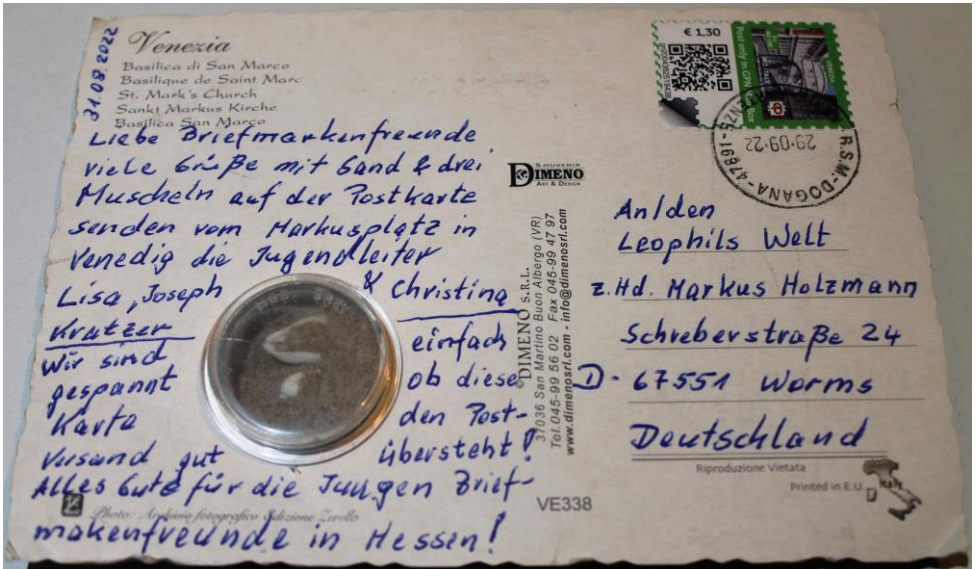 31.08.2022
Venezia
Basilica di San Marco
Basilique de Saint Marc
St. Mark's Church
Sankt Markus Kirche
Basilica San Marco
Liebe Briefmarkenfreunde
viele Grüße mit Sand & drei
Muscheln auf der Postkarte
senden vom Markusplatz in
Venedig die Jugendleiter
Lisa, Joseph & Christina
Krutzer einfach
Wir sind ob diese
gespannt den Post-
Karte übersteht!
Versand gut
Alles Gute für die Jungen Brief-
makenfreunde in Hessen!
Photo: Archivio fotografico Edizione Zerella
VE338
SOUVENIR
DIMENO
ART & DESIGN
©DIMENO S.R.L.
37036 San Martino Buon Albergo (VR)
Tel.045-99 56 02 Fax 045-99 47 97
www.dimenosrl.com - info@dimenosrl.com
€ 1,30
Post only in GPN Mail Box
VENEZIA
R.S.M.-DOGANA-47891
29·09·22
An/den
Leophils Welt
z.Hd. Markus Holzmann
Schreberstraße 24
D-67551 Worms
Deutschland
Riproduzione Vietata
Printed in E.U.
Italy